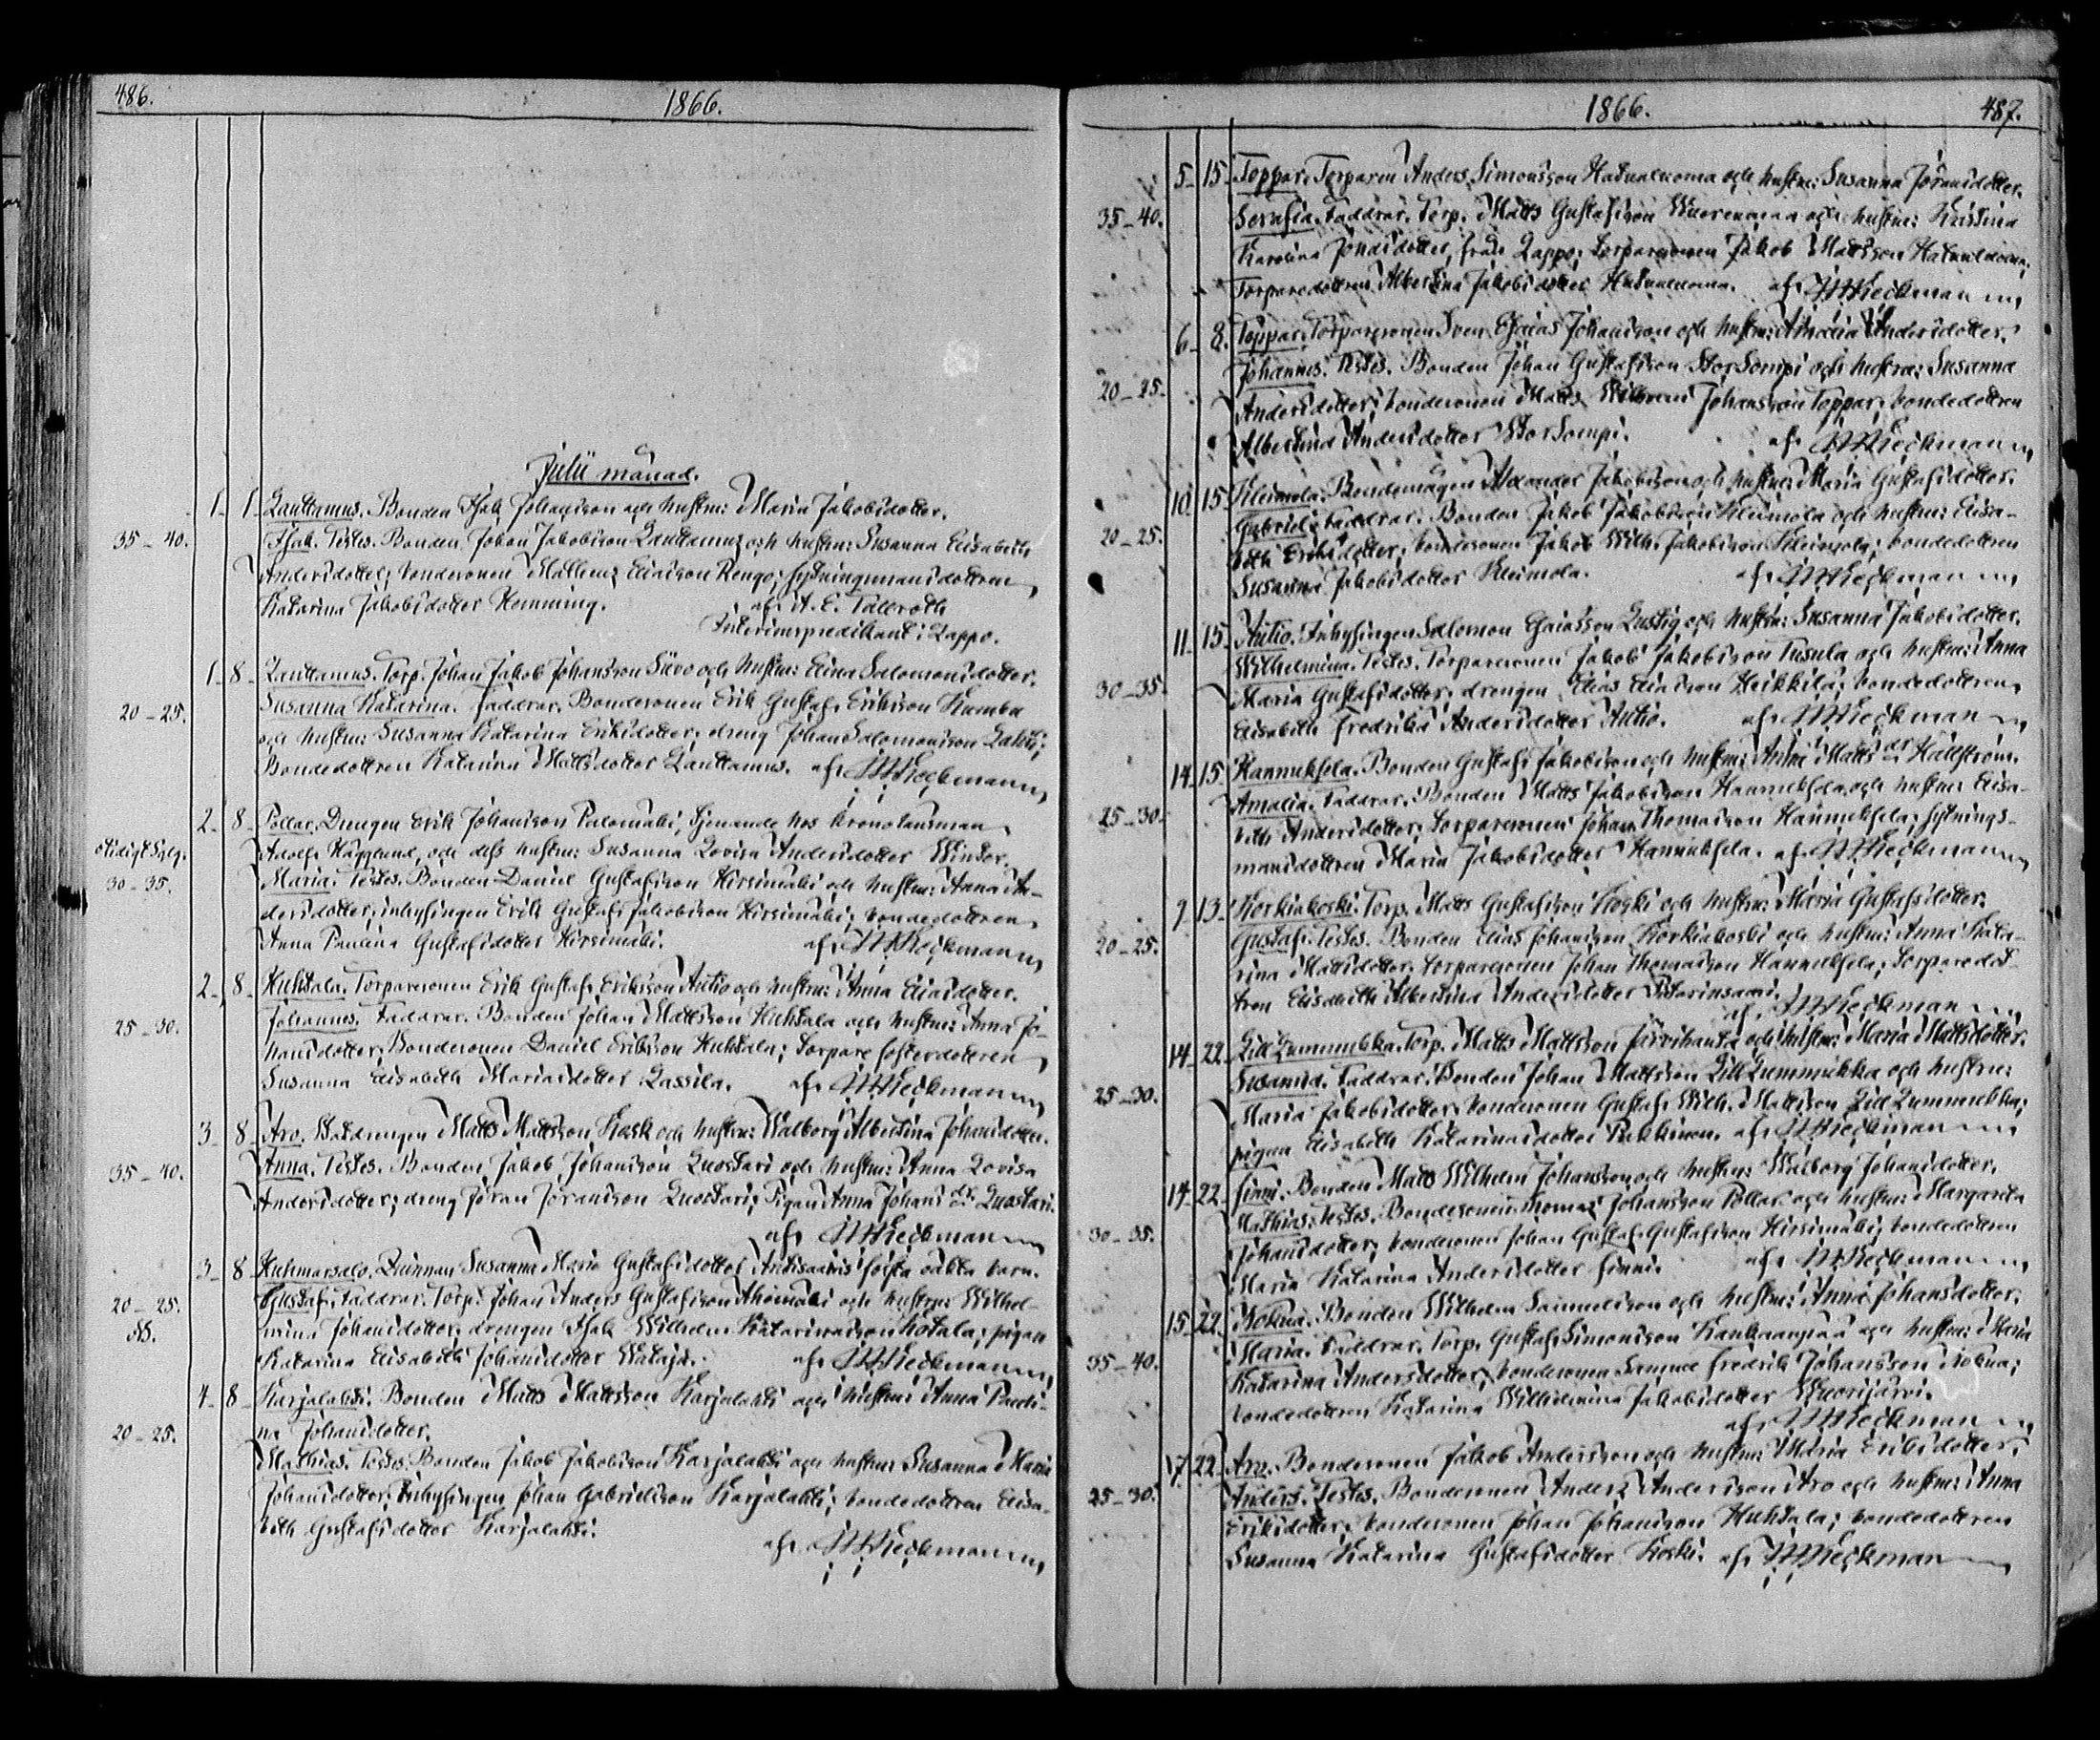 486.
1866.
Julii månad.
1. 1. Lauttamus. Bonden Isak Johansson och hustru: Maria Jakobsdotter.
35-40. Isak. Testes. Bonden Johan Jakobsson Lauttamus och hustru: Susanna Elisabeth
Andersdotter; bondesonen Matts Eliasson Rengo; sytningsmansdottren
Katarina Jakobsdotter Hemming. af A. E. Tallroth
Interimspredikant i Lappo.
1. 8. Lauttamus. Torp. Johan Jakob Johansson Siivo och hustru: Elina Salomonsdotter.
20-25. Susanna Katarina. Faddrar. Bondesonen Erik Gustaf Eriksson
och hustru: Susanna Katarina Eriksdotter; dreng Johan Salomonsson Lahti;
Bondedottren Katarina Mattsdotter Lauttamus. af
2. 8. Pollar. Drengen Erik Johansson Palomäki, tjenande hos kronolänsman
Adolf Hägglund, och dess hustru: Susanna Lovisa Andersdotter Winter.
30-35. Maria. Testes. Bonden Daniel Gustafsson Hirsimäki och hustru: Anna An-
dersdotter; inhysingen Erik Gustaf Jakobsson Hirsimäki; bondedottren
Anna Paulina Gustafsdotter Hirsimäki. af
2. 8. Huhtala. Torparesonen Erik Gustaf Eriksson Autio och hustru: Anna Eliasdotter.
25-30. Johannes. Faddrar. Bonden Johan Mattsson Huhtala och hustru: Anna Jo-
hansdotter; Bondesonen Daniel Eriksson Huhtala; torpare fosterdottren
Susanna Elisabeth Mariasdotter Lassila. af
3. 8. Aro. Matts Mattsson Kosk och hustru: Walborg Albertina Johansdotter.
35-40. Anna. Testes. Bonden Jakob Johansson Luostari och hustru: Anna Lovisa
Andersdotter; dreng Jöran Jöransson Luostari; Pigan Anna Johans dr. Luostari.
af
3. 8. Huhmarsalo. Qvinnan Susanna Maria Gustafsdotter första oäkta barn.
20-25. Gustaf. Faddrar. Torp. Johan Anders Gustafsson och hustru: Wilhel-
mina Johansdotter; drengen Isak Wilhelm Katarinasson Kotala; pigan
Katarina Elisabeth Johansdotter af
4. 8. Karjalahti. Bonden Matts Mattsson Karjalahti och hustru: Anna Pauli-
20-25. na Johansdotter.
Mathias. Testes. Bonden Jakob Jakobsson Karjalahti och hustru: Susanna Maria
Johansdotter; Inhysingen Johan Gabrielsson Karjalahti; bondedottren Elisa-
beth Gustafsdotter Karjalahti.
af
1866. 487.
5. 15. Toppar. Torparen Anders Simonsson Hatunluoma och hustru: Susanna Jöransdotter.
35-40. Serafia. Faddrar. Torp. Matts Gustafsson Wuorenmaa och hustru: Kristina
Karolina Jonasdotter, från Lappo; torparesonen Jakob Mattsson Hatunluoma;
Torparedottren Albertina Jakobsdotter Hatunluoma. af
6. 8. Toppar. Torparesonen Sven Esaias Johansson och hustru: Amalia Andersdotter.
20-25. Johannes. Testes. Bonden Johan Gustafsson StorSompi och hustru: Susanna
Andersdotter; bondesonen Matts Wilhelm Johansson Toppar; bondedottren
Albertina Andersdotter StorSompi. af
10. 15. Kleimola. Bondemågen Alexander Jakobsson och hustru: Maria Gustafsdotter.
20-25. Gabriel. Faddrar. Bonden Jakob Jakobsson Kleimola och hustru: Elisa-
beth Eriksdotter; bondesonen Jakob Wilh. Jakobsson Kleimola; bondedottren
Susanna Jakobsdotter Kleimola. af
11. 15. Autio. Inhysingen Salomon Esaiasson Lustig och hustru: Susanna Jakobsdotter.
30-35. Wilhelmina. Testes. Torparesonen Jakob Jakobsson Tusula och hustru: Anna
Maria Gustafsdotter; drengen Elias Eliasson Heikkilä; bondedottren
Elisabeth Fredrika Andersdotter Autio. af
14. 15. Hannuksela. Bonden Gustaf Jakobsson och hustru: Anna Matts dr Hällström.
25-30. Amalia. Faddrar. Bonden Matts Jakobsson Hannuksela och hustru: Elisa-
beth Andersdotter; torparesonen Johan Thomasson Hannuksela; sytnings-
mansdottren Maria Jakobsdotter Hannuksela. af
7. 13. Korkiakoski. Torp. Matts Gustafsson Koski och hustru: Maria Gustafsdotter.
20-25. Gustaf. Testes. Bonden Elias Johansson Korkiakoski och hustru: Anna Kata-
rina Mattsdotter; torparesonen Johan Thomasson Hannuksela; torparedot-
tren Elisabeth Albertina Andersdotter Pitarinsaari.
af
14. 22. LillLummukka. Torp. Matts Mattsson Järvihauta och hustru: Maria Mattsdotter.
25-30. Susanna. Faddrar. Bonden Johan Mattsson LillLummukka och hustru:
Maria Jakobsdotter; bondesonen Gustaf Wilh. Mattsson LillLummukka;
pigan Elisabeth Katarinasdotter Pukkinen. af
14. 22. Finni. Bonden Matts Wilhelm Johansson och hustru: Walborg Johansdotter.
30-35. Mathias. Testes. Bondesonen Thomas Johansson Pollar och hustru: Margareta
Johansdotter; bondesonen Johan Gustaf Gustafsson Hirsimäki; bondedottren
Maria Katarina Andersdotter Finni. af
15. 22. Kokua. Bonden Wilhelm Samuelsson och hustru: Anna Johansdotter.
35-40. Maria. Faddrar. Torp. Gustaf Simonsson Kankaanpää och hustru: Maria
Katarina Andersdotter; bondesonen Samuel Fredrik Johansson Kokua;
bondedottren Katarina Wilhelmina Jakobsdotter Wuorijärvi.
af
17. 22. Aro. Bondesonen Jakob Andersson och hustru: Maria Eriksdotter.
25-30. Anders. Testes. Bondesonen Anders Andersson Aro och hustru: Anna
Eriksdotter; bondesonen Johan Johansson Huhtala; bondedottren
Susanna Katarina Gustafsdotter Koski. af